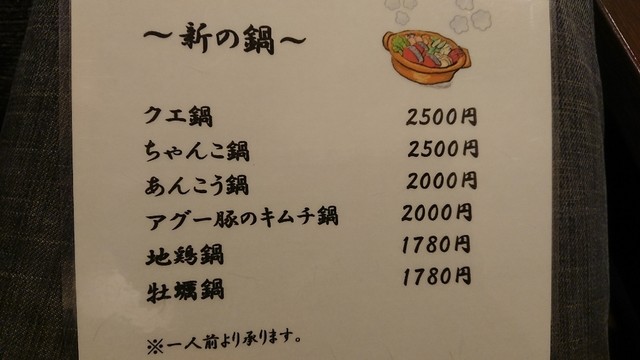 ～新の鍋～
クエ鍋 2500円
ちゃんこ鍋 2500円
あんこう鍋 2000円
アグー豚のキムチ鍋 2000円
地鶏鍋 1780円
牡蠣鍋 1780円
※一人前より承ります。